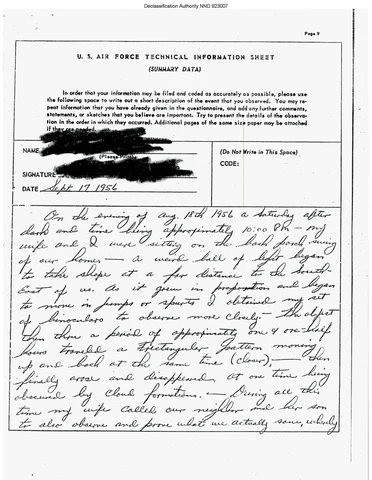 Declassification Authority NND 923007
Page 9
U. S. AIR FORCE TECHNICAL INFORMATION SHEET
(SUMMARY DATA)
In order that your information may be filed and coded as accurately as possible, please use
the following space to write out a short description of the event that you observed. You may re-
peat information that you have already given in the questionnaire, and add any further comments,
statements, or sketches that you believe are important. Try to present the details of the observa-
tion in the order in which they occurred. Additional pages of the same size paper may be attached
if they are needed.
NAME
(Please Print)
(Do Not Write in This Space)
CODE:
SIGNATURE
DATE Sept 17 1956
On the evening of Aug. 18th 1956 a Saturday after
dark and time being approximately 10:00 PM - my
wife and I were sitting on the back porch swing
of our home - a weird ball of light began
to take shape at a far distance to the South
East of us. As it grew in proportion and began
to move in jumps or spurts I obtained my set
of binoculars to observe more closely - the object
then thru a period of approximately one & one-half
hours traveled a Rectangular Pattern moving
up and back at the same time (closer), - then
finally arose and disappeared at one time being
obscured by cloud formations. - During all this
time my wife called our neighbor and her son
to also observe and prove what we actually saw,